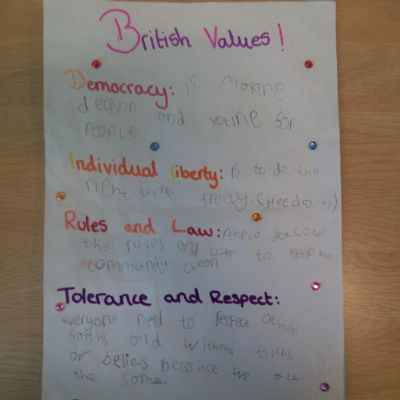 British Values!
Democracy: is making
deason and voting for
People
Individual liberty: is to do the
right thing freely. (freedom)
Rules and Law: People follow
the rules and law to keep
community clean
Tolerance and Respect:
everyone need to respect other
faiths and without faiths
or belices because we all
the same.